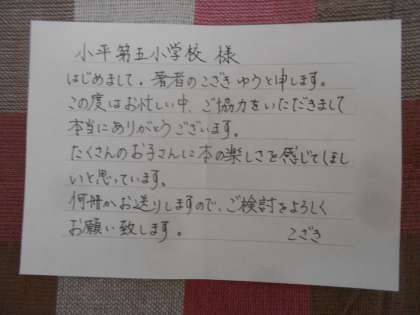 小平第五小学校 様
はじめまして。著者のこざきゆうと申します。
この度はお忙しい中、ご協力をいただきまして
本当にありがとうございます。
たくさんのお子さんに本の楽しさを感じてほし
いと思っています。
何冊かお送りしますので、ご検討をよろしく
お願い致します。 こざき